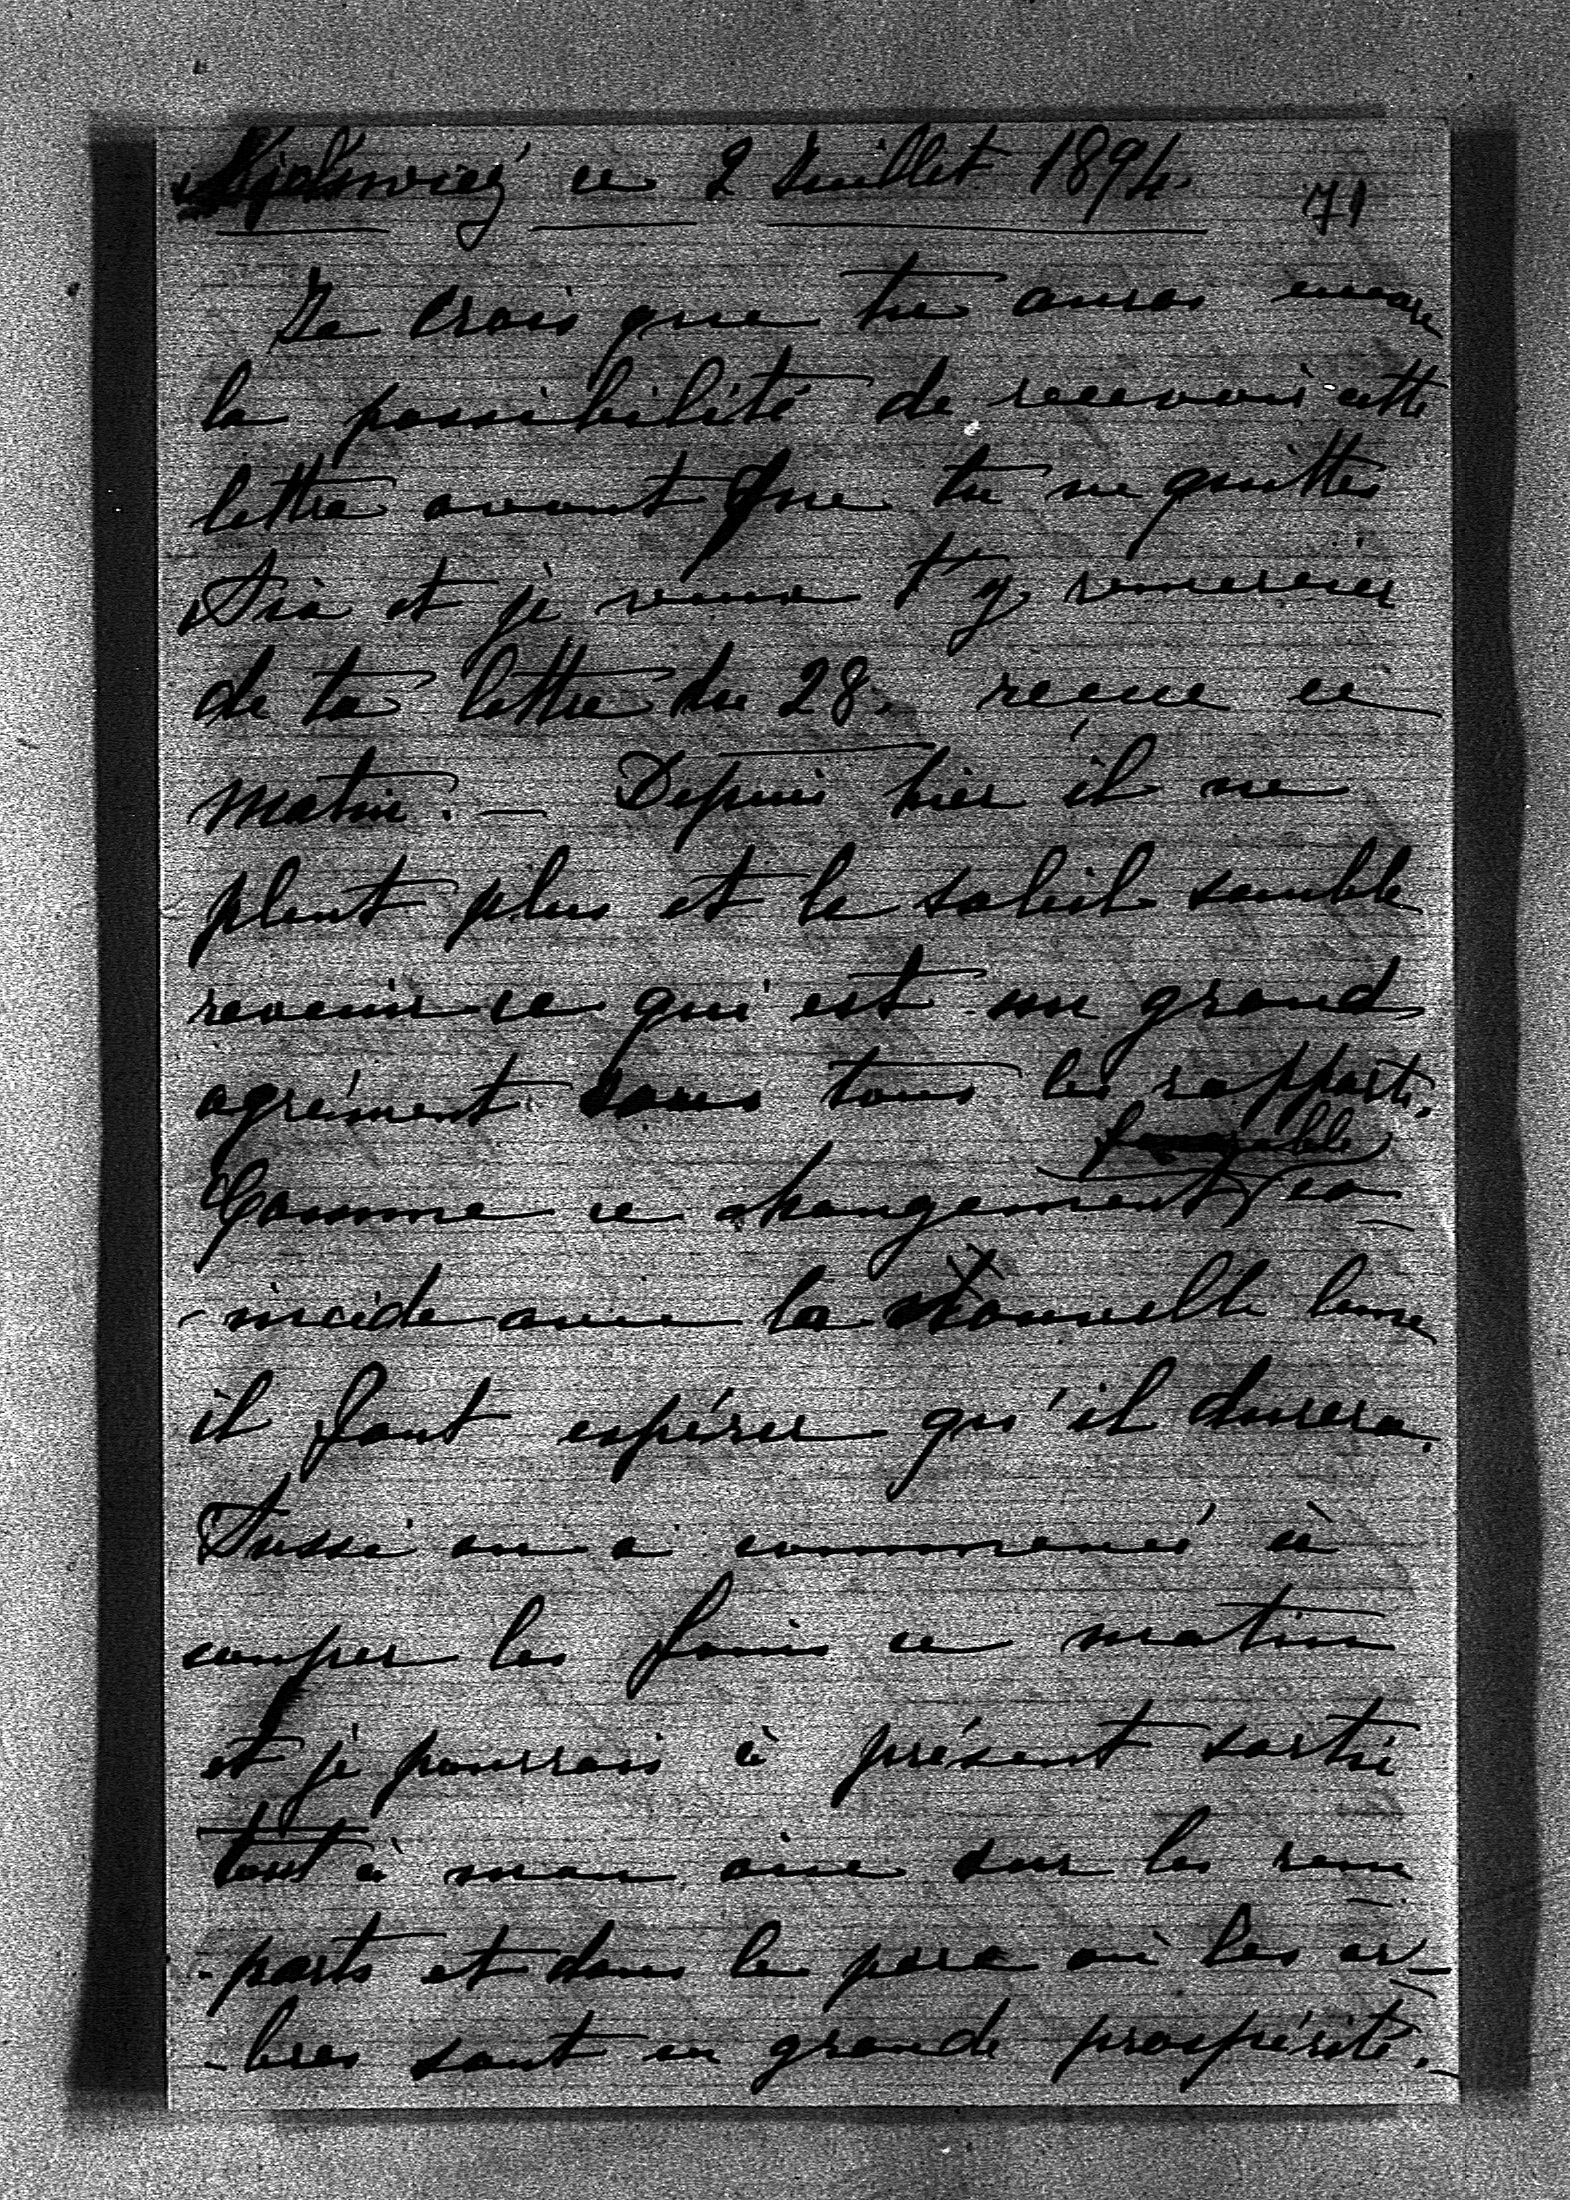 ce 2 Juillet 1894. 71
Je crois que tu auras encore
la possibilité de recevoir cette
lettre avant que tu ne quittes
et je veux t'y remercier
de ta lettre du 28. reçue ce
matin. — Depuis hier il ne
pleut plus et le soleil semble
revenir ce qui est un grand
agrément sous tous les rapports.
favorable
Comme ce changement co-
-incide avec la nouvelle lune
il faut espérer qu'il durera.
Aussi on a commencé à
couper les foins ce matin
et je pourrais à présent sortir
tout à mon aise sur les rem-
-parts et dans le parc où les ar-
-bres sont en grande prospérité. —